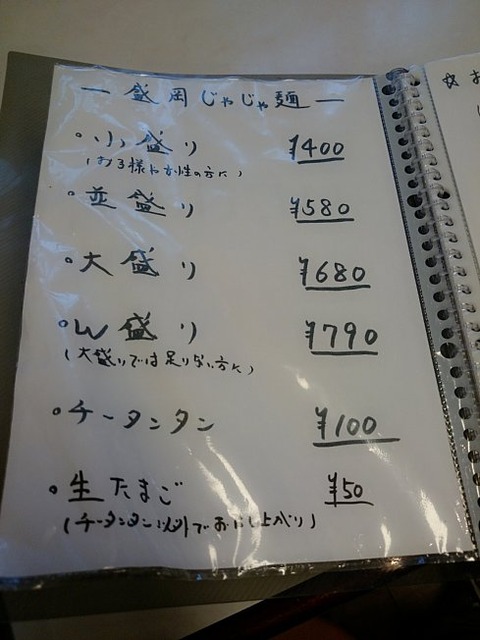 ー 盛岡じゃじゃ麺 ー
・小盛り ¥400
(お子様や女性の方に)
・並盛り ¥580
・大盛り ¥680
・W盛り ¥790
(大盛りでは足りない方に)
・チータンタン ¥100
・生たまご ¥50
(チータンタン以外でお召し上がり)
☆お